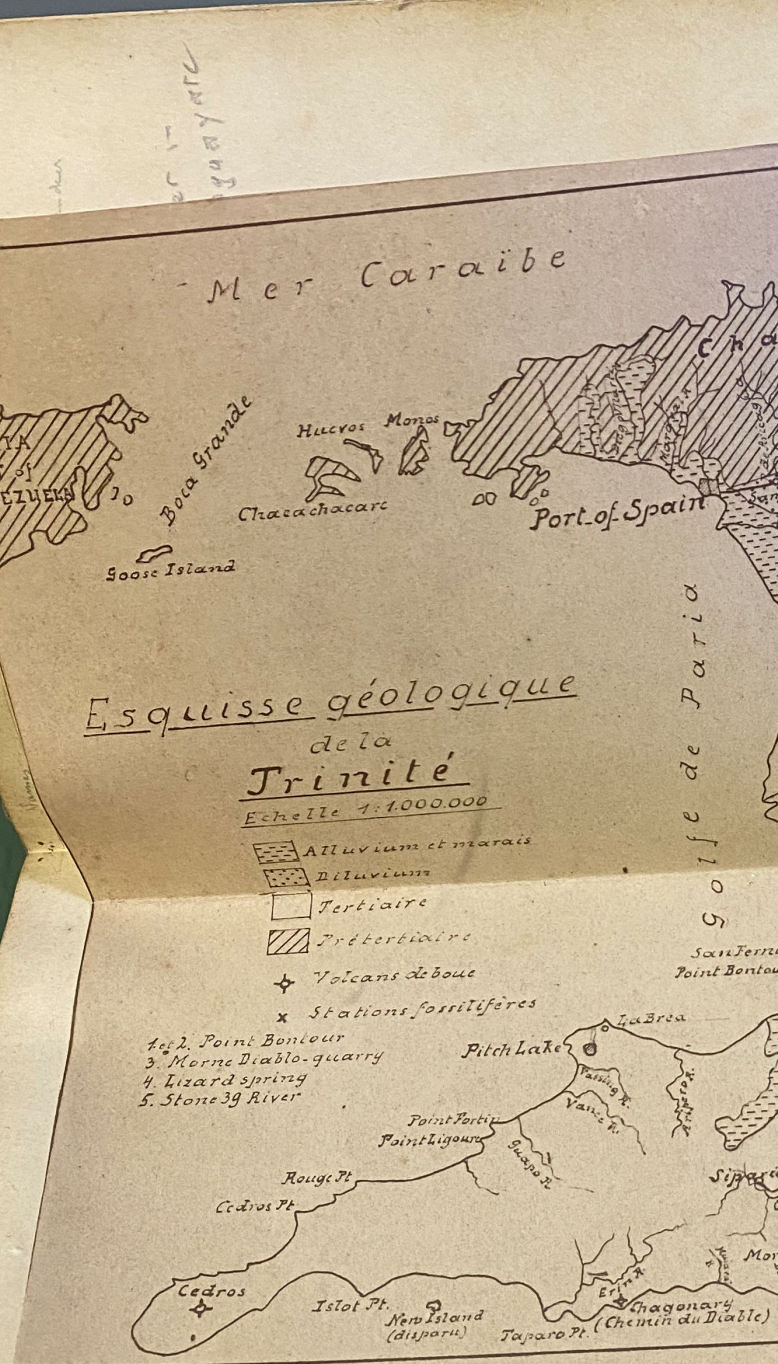 Mer Caraïbe
Cha
Boca Grande
Huevos
Monos
Chacachacare
Port-of-Spain
San
Goose Island
Golfe de Paria
Esquisse géologique
de la
Trinité
Echelle 1:1.000.000
Alluvium et marais
Diluvium
Tertiaire
Prétertiaire
Volcans de boue
Stations fossilifères
1 et 2. Point Bontour
3. Morne Diablo-quarry
4. Lizard spring
5. Stone 39 River
San Ferna
Point Bontou
La Brea
Pitch Lake
Vance R.
Point Fortin
Point Ligoure
Guapo R.
Rouge Pt
Cedros Pt.
Sipari
Cedros
Islot Pt.
New Island
(disparu)
Erin R.
Mor
Chagonary
(Chemin du Diable)
Taparo Pt.